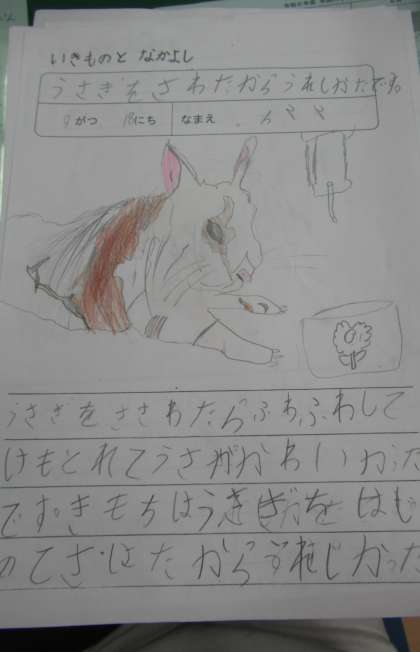 いきものと なかよし
うさぎをさわたからうれしかたです。
9がつ 18にち なまえ
うさぎをささわたらふわふわして
けもとれてうさがかわいかった
です。きもちはうさぎをはじ
のてさはたからうれしかった